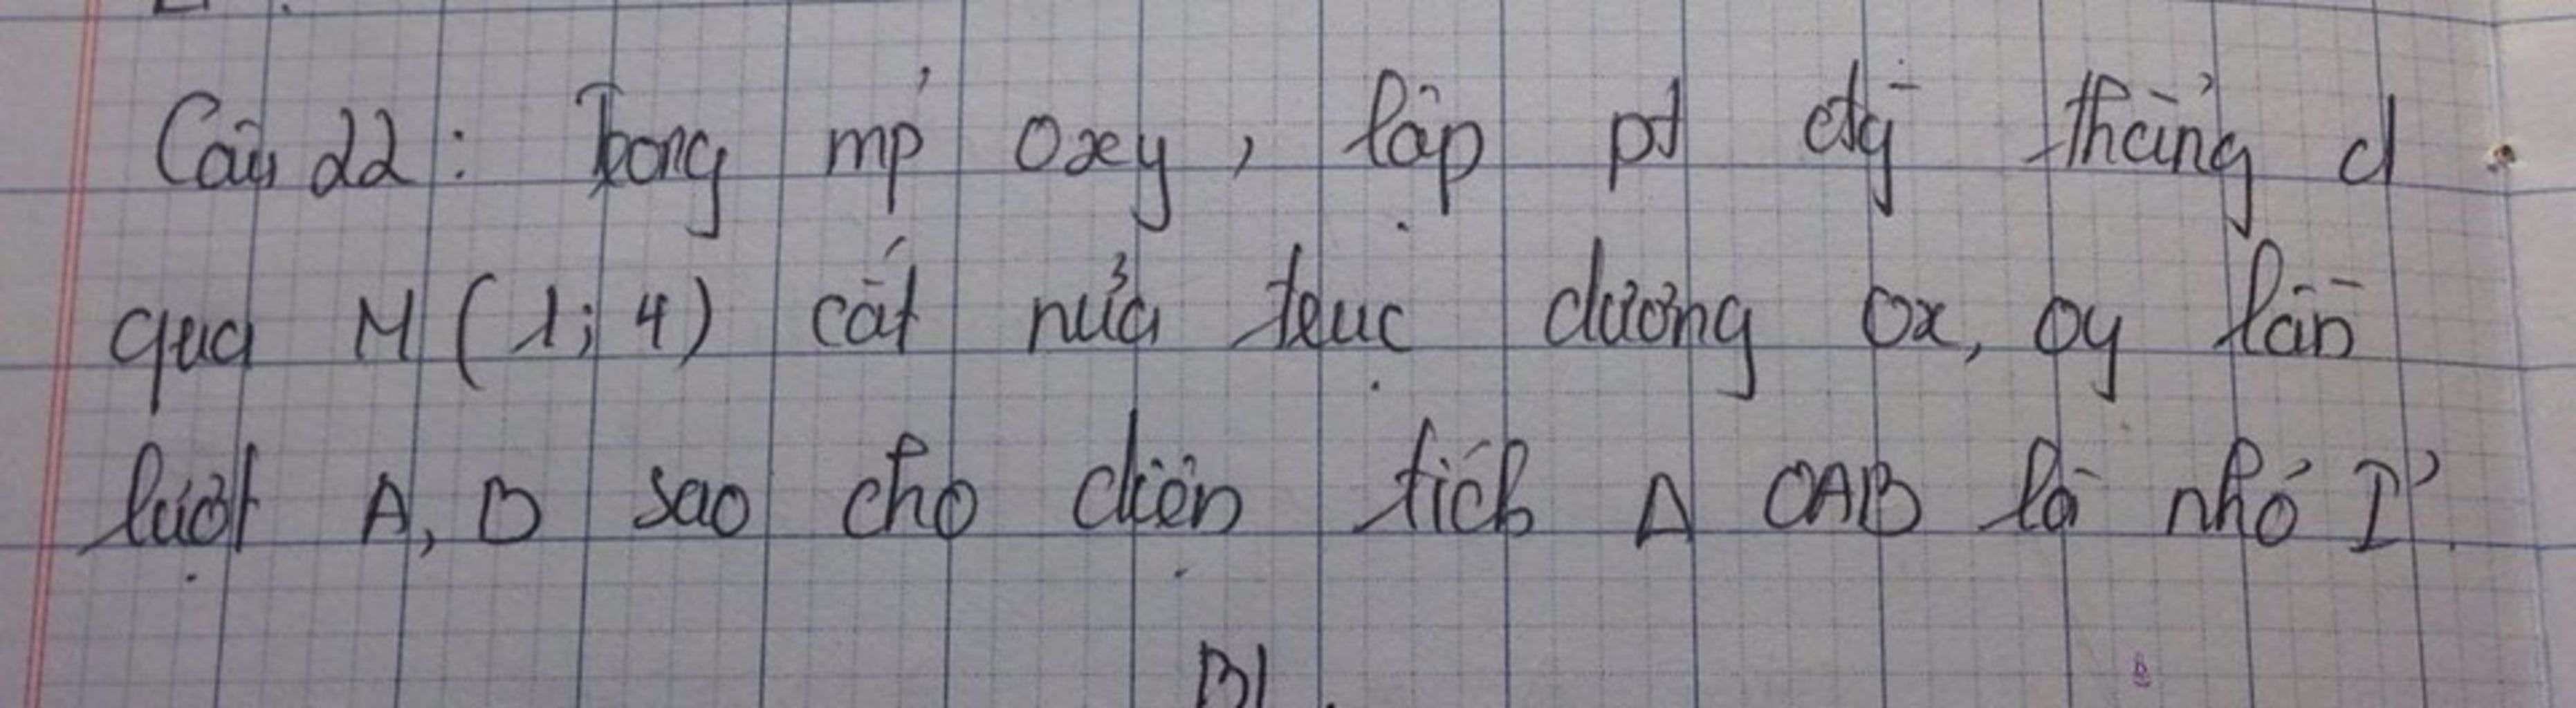 Câu 22: Trong mp' Oxy, lập pt đg̅ thẳng d
qua M (1; 4) cắt nửa trục dương Ox, Oy lần
lượt A, B sao cho diện tích Δ OAB là nhỏ I'.
Bl.